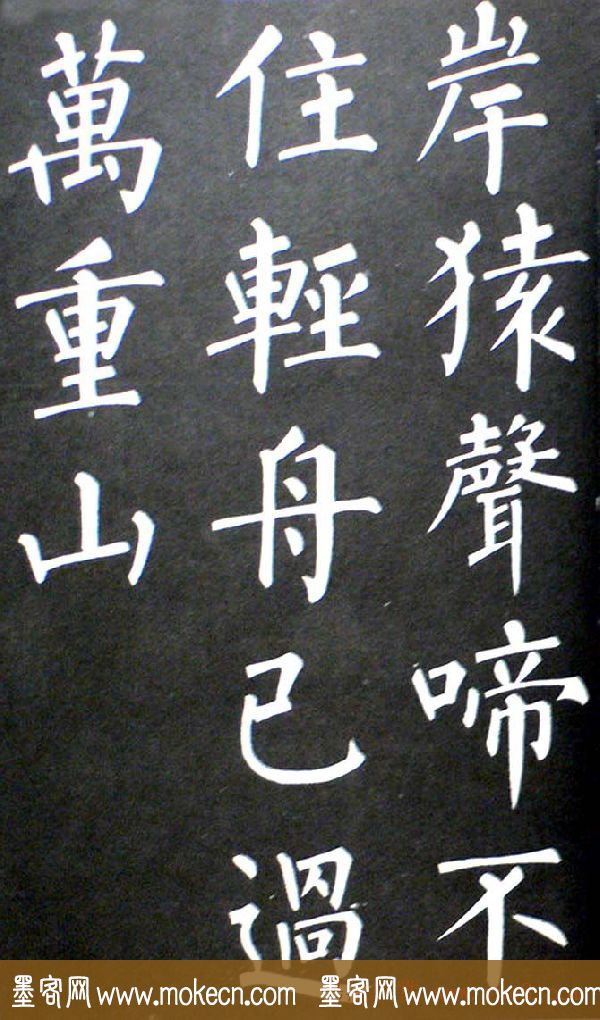 岸猿聲啼不
住輕舟已過
萬重山
墨客网 www.mokecn.com 墨客网 www.mokecn.com